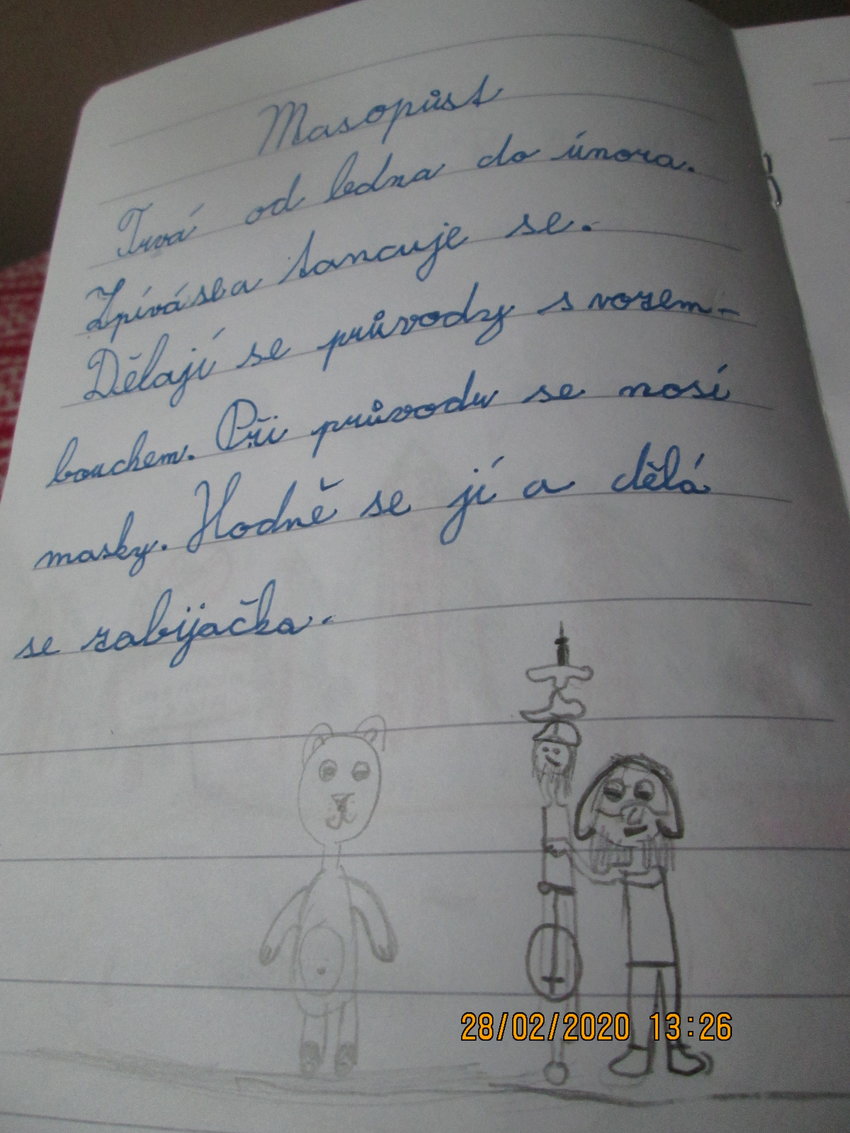 Masopůst
Trvá od ledna do února.
Zpívá se a tancuje se.
Dělají se průvody s vozem-
bouchem. Při průvodu se nosí
masky. Hodně se jí a dělá
se zabijačka.
28/02/2020 13:26